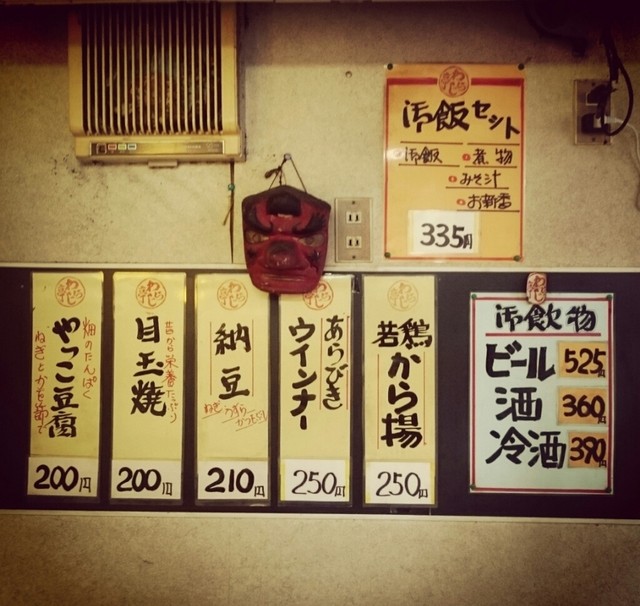 御飯セット
御飯
煮物
みそ汁
お新香
335円
御飲物
ビール 525円
酒 360円
冷酒 390円
若鶏から揚
250円
あらびき
ウインナー
250円
納豆
ねぎ うずら
かつおぶし
210円
昔から栄養たっぷり
目玉焼
200円
畑のたんぱく
やっこ豆腐
ねぎとかつお節で
200円